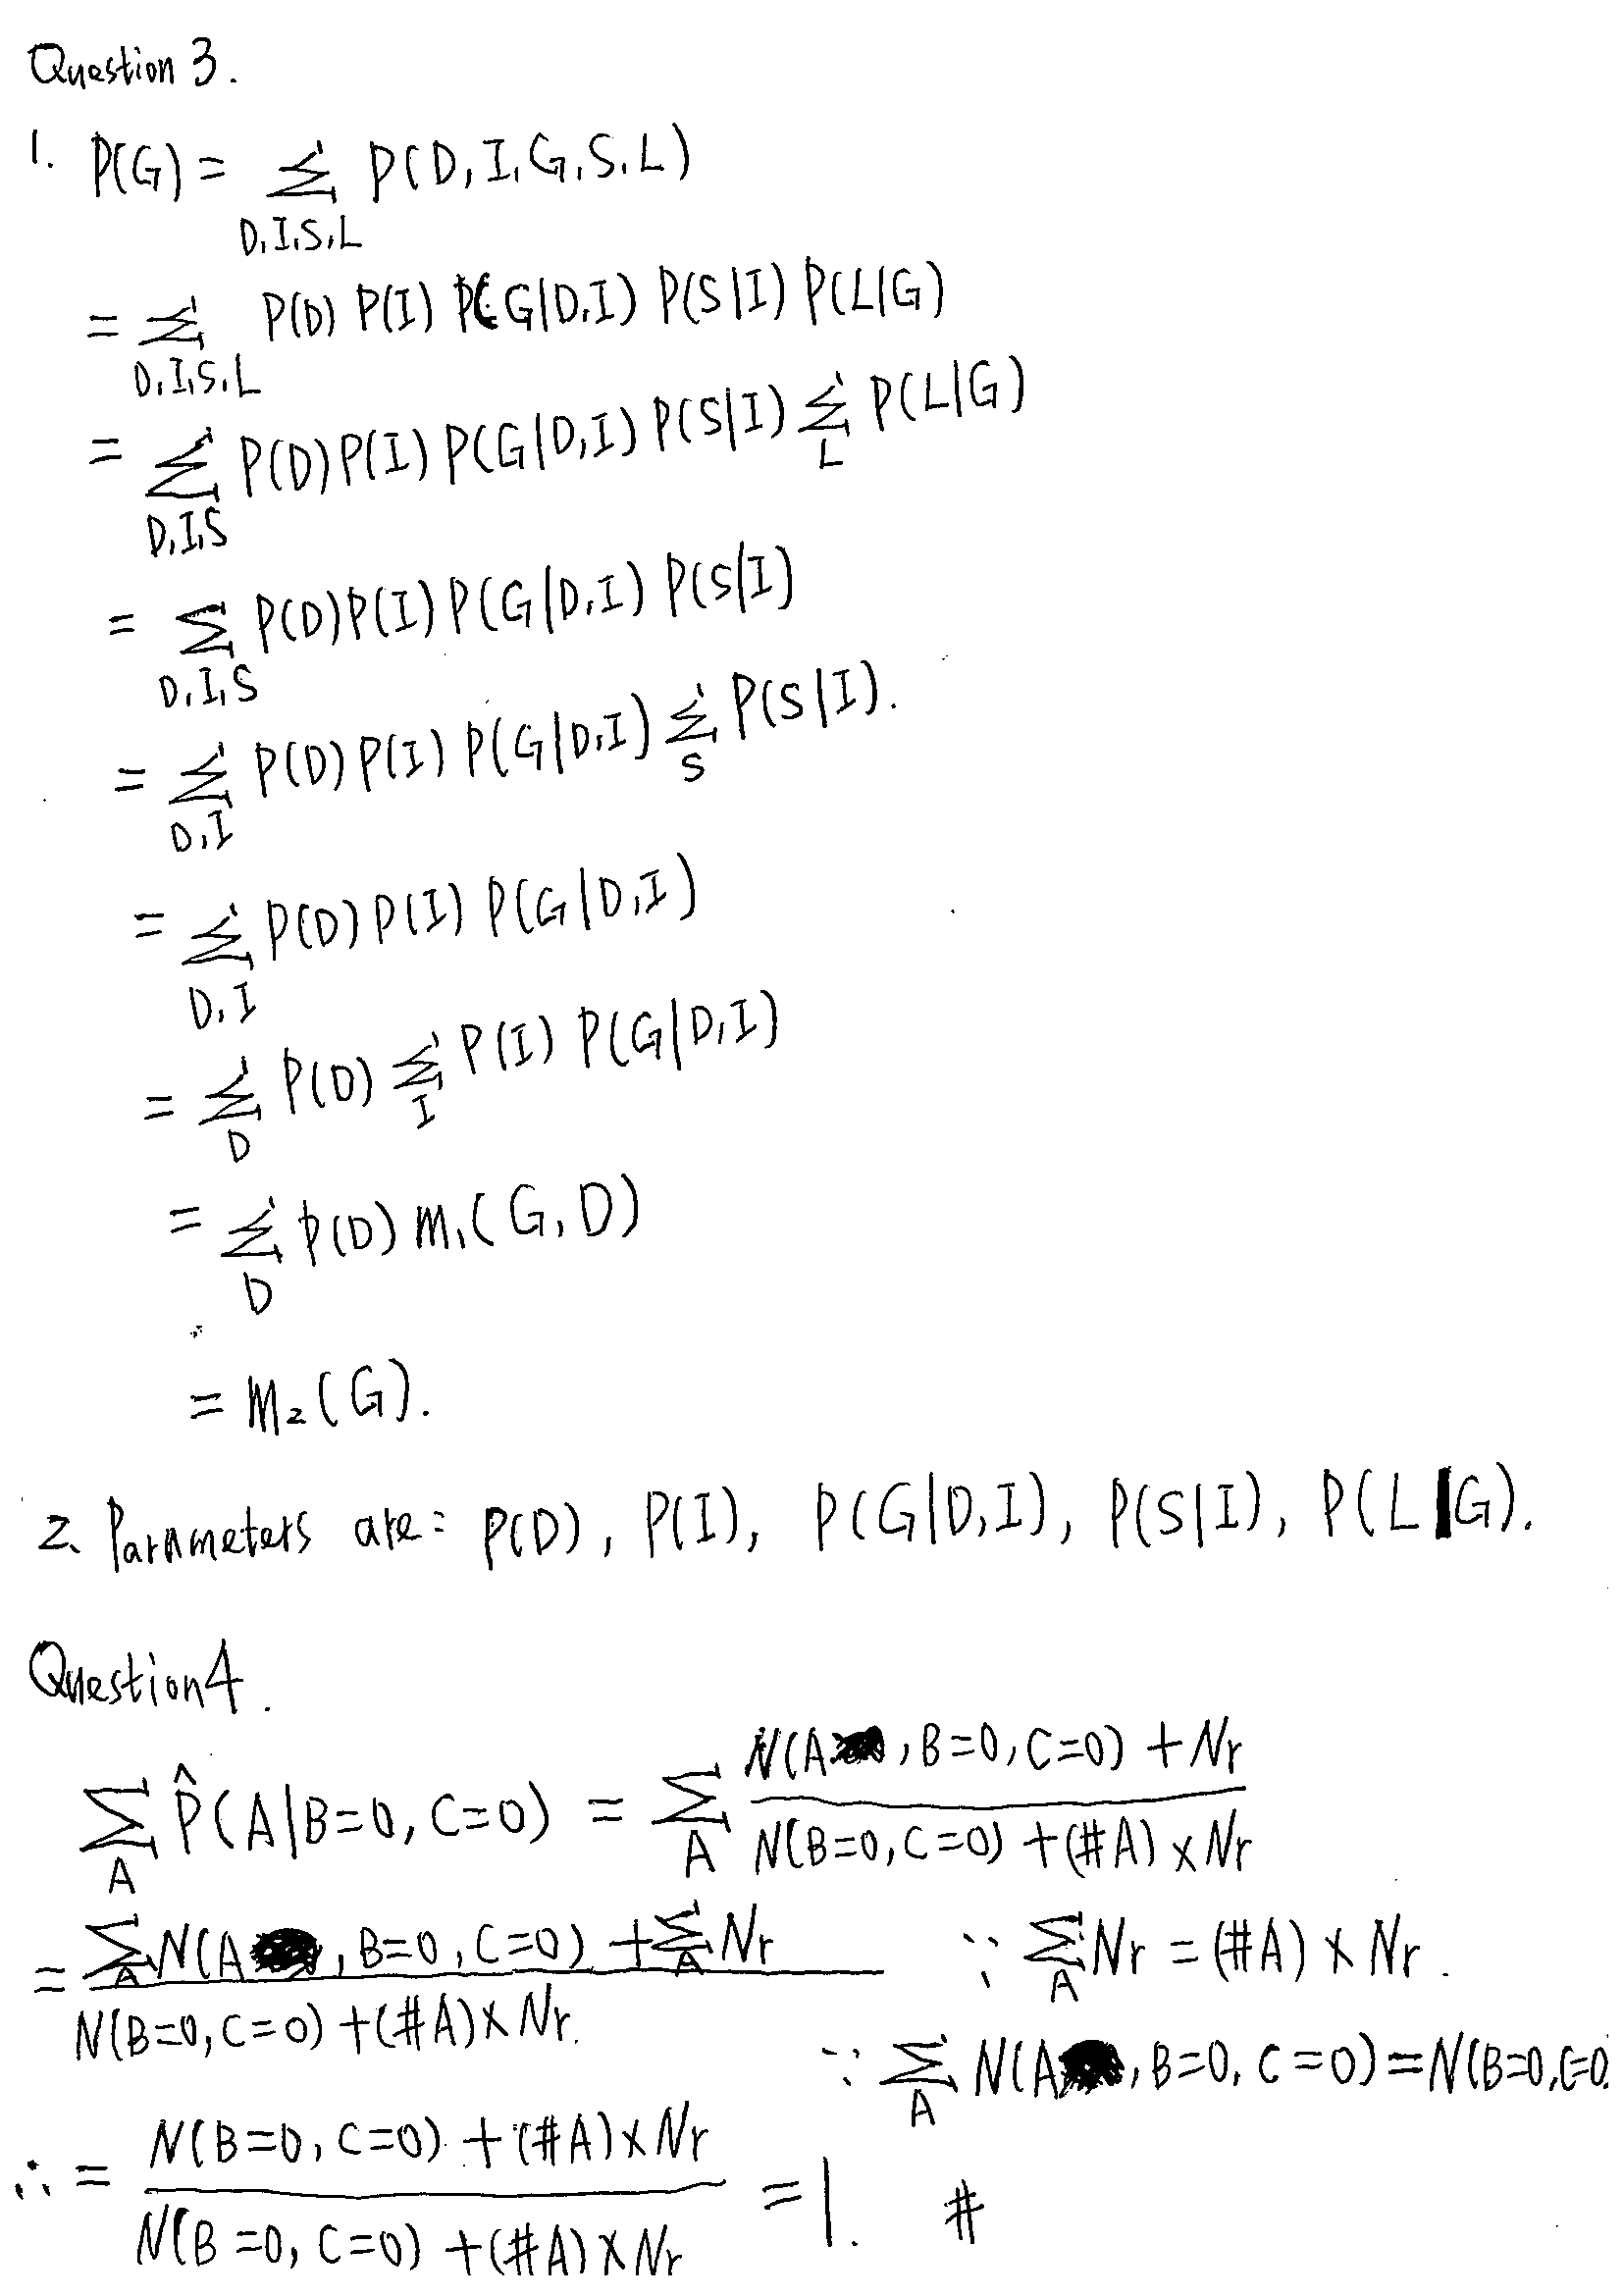 Question 3.
1. P(G) = ∑_{D,I,S,L} P(D,I,G,S,L)
= ∑_{D,I,S,L} P(D) P(I) P(G|D,I) P(S|I) P(L|G)
= ∑_{D,I,S} P(D)P(I) P(G|D,I) P(S|I) ∑_{L} P(L|G)
= ∑_{D,I,S} P(D)P(I) P(G|D,I) P(S|I)
= ∑_{D,I} P(D) P(I) P(G|D,I) ∑_{S} P(S|I).
= ∑_{D,I} P(D) P(I) P(G|D,I)
= ∑_{D} P(D) ∑_{I} P(I) P(G|D,I)
= ∑_{D} P(D) m₁(G,D)
= m₂(G).
2. Parameters are: P(D), P(I), P(G|D,I), P(S|I), P(L|G).
Question 4.
∑_{A} P̂(A|B=0, C=0) = ∑_{A} (N(A, B=0, C=0) + Nr) / (N(B=0, C=0) + (#A) × Nr)
= (∑_{A} N(A, B=0, C=0) + ∑_{A} Nr) / (N(B=0, C=0) + (#A) × Nr.) ∵ ∑_{A} Nr = (#A) × Nr.
∵ ∑_{A} N(A, B=0, C=0) = N(B=0, C=0)
∴ = (N(B=0, C=0) + (#A) × Nr) / (N(B=0, C=0) + (#A) × Nr) = 1. #